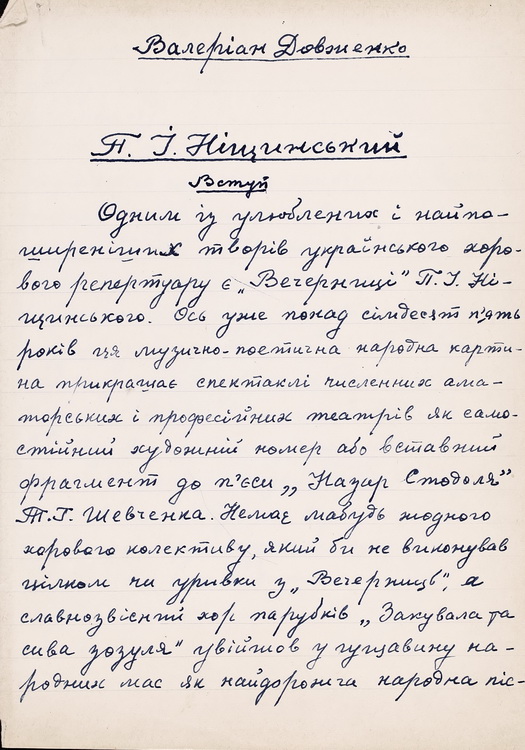 Валеріан Довженко
П. І. Ніщинський
Вступ
Одним із улюблених і найпо-
ширеніших творів українського хоро-
вого репертуару є „Вечерниці" П. І. Ні-
щинського. Ось уже понад сімдесят п'ять
років ця музично-поетична народна карти-
на прикрашає спектаклі численних ама-
торських і професійних театрів як само-
стійний художній номер або вставний
фрагмент до п'єси „Назар Стодоля"
Т. Г. Шевченка. Немає мабудь жодного
хорового колективу, який би не виконував
цілком чи уривки з „Вечерниць", а
славнозвісний хор парубків „Закувала та
сива зозуля" увійшов у гущавину на-
родних мас як найдорожча народна піс-